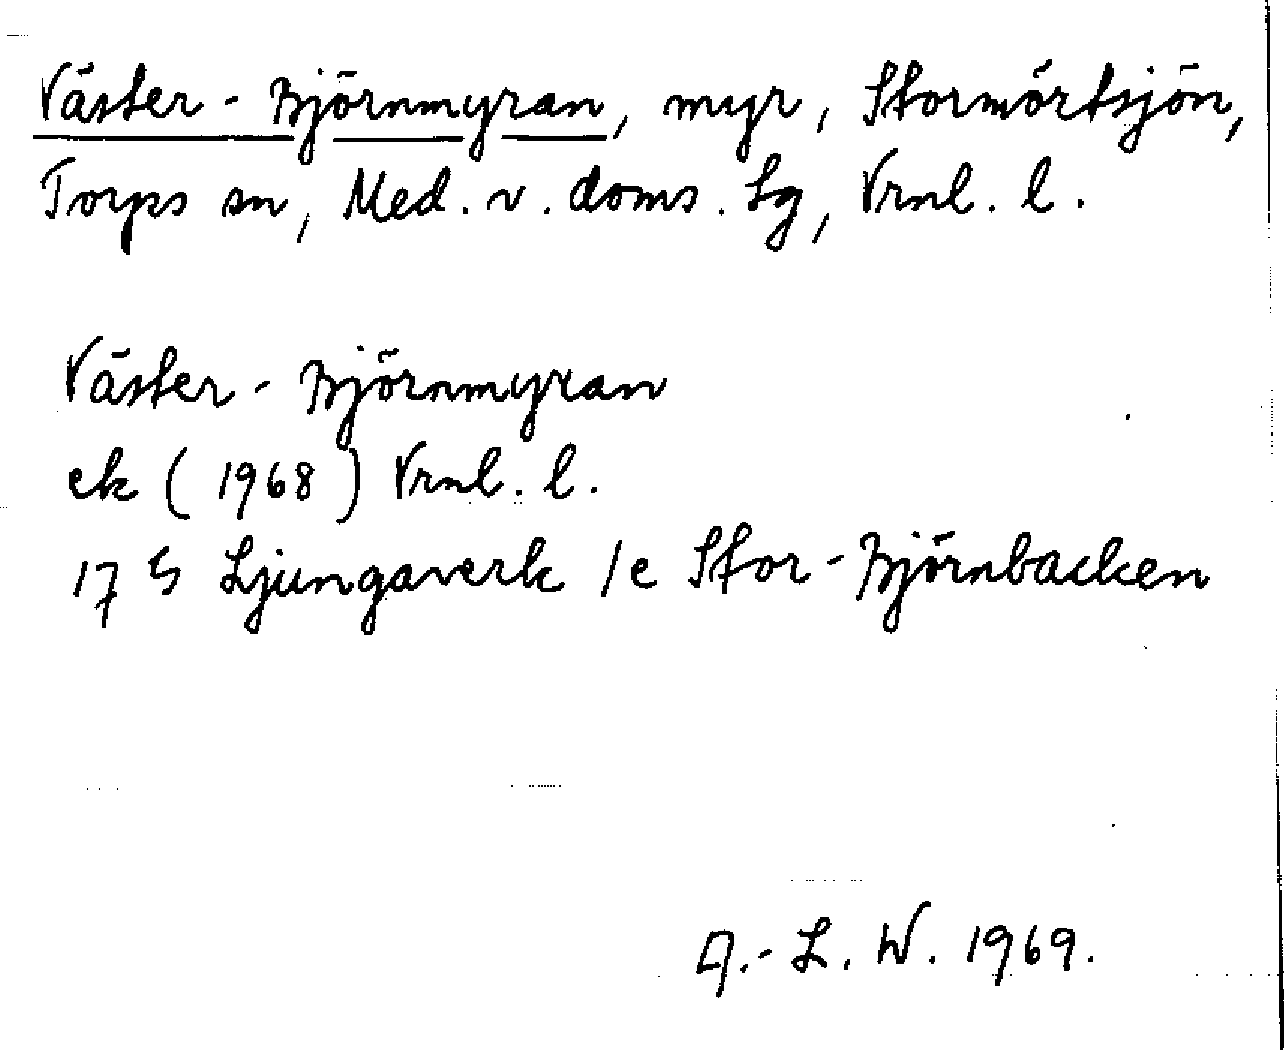 Väster-Björnmyran, myr, Stormörtsjön,
Torps sn, Med. v. doms. lg, Vrnl. l.
Väster-Björnmyran
ek (1968) Vrnl. l.
17 G Ljungaverk 1e Stor-Björnbacken
A.-L. W. 1969.